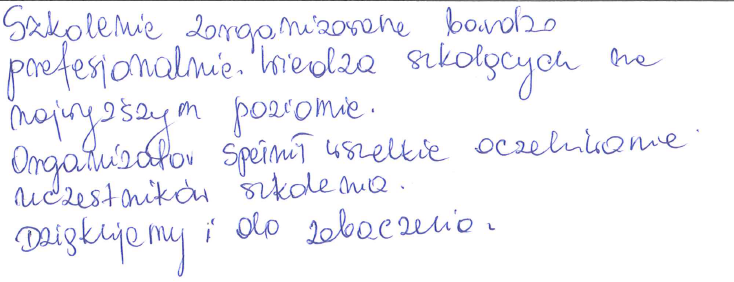 Szkolenie zorganizowane bardzo
profesjonalnie. Wiedza szkolących na
najwyższym poziomie.
Organizator spełnił wszelkie oczekiwanie
uczestników szkolenia.
Dziękujemy i do zobaczenia.